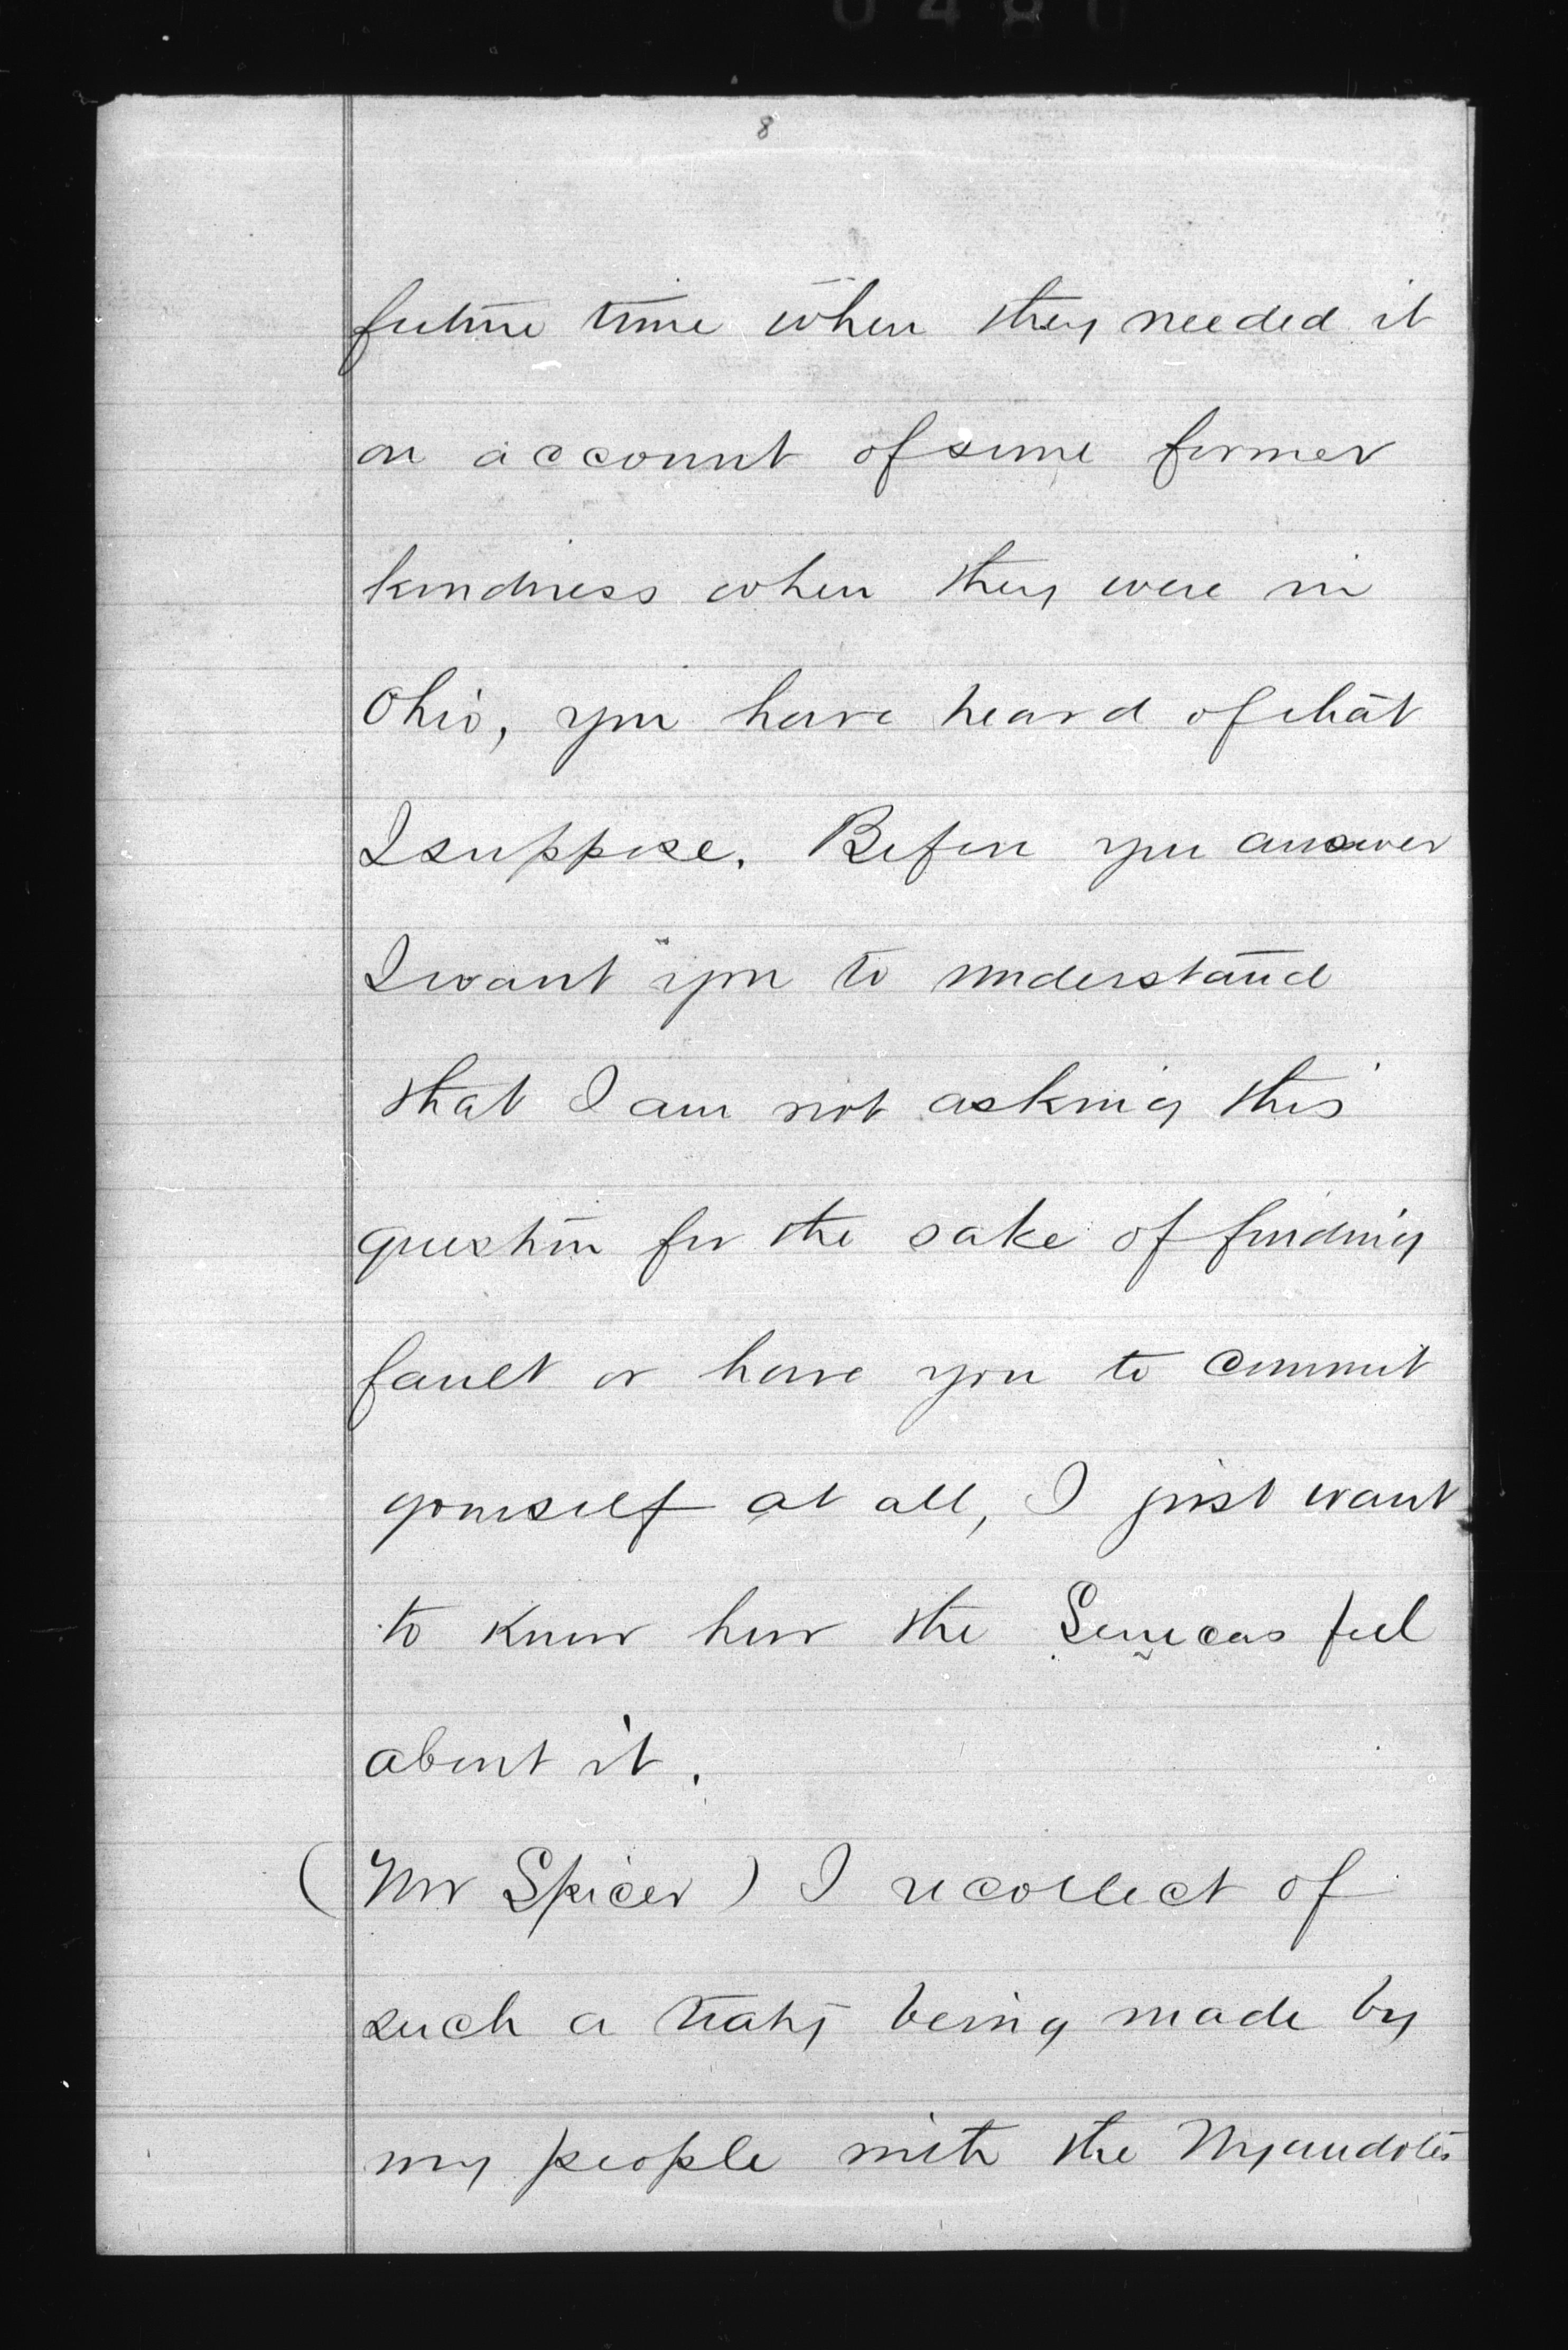 8
future time when they needed it
on account of some former
kindness when they were in
Ohio, you have heard of that
I suppose. Before you answer
I want you to understand
that I am not asking this
question for the sake of finding
fault or have you to commit
yourself at all, I just want
to know how the Senecas feel
about it.
(Mr Spicer) I recollect of
such a treaty being made by
my people with the Wyandotes